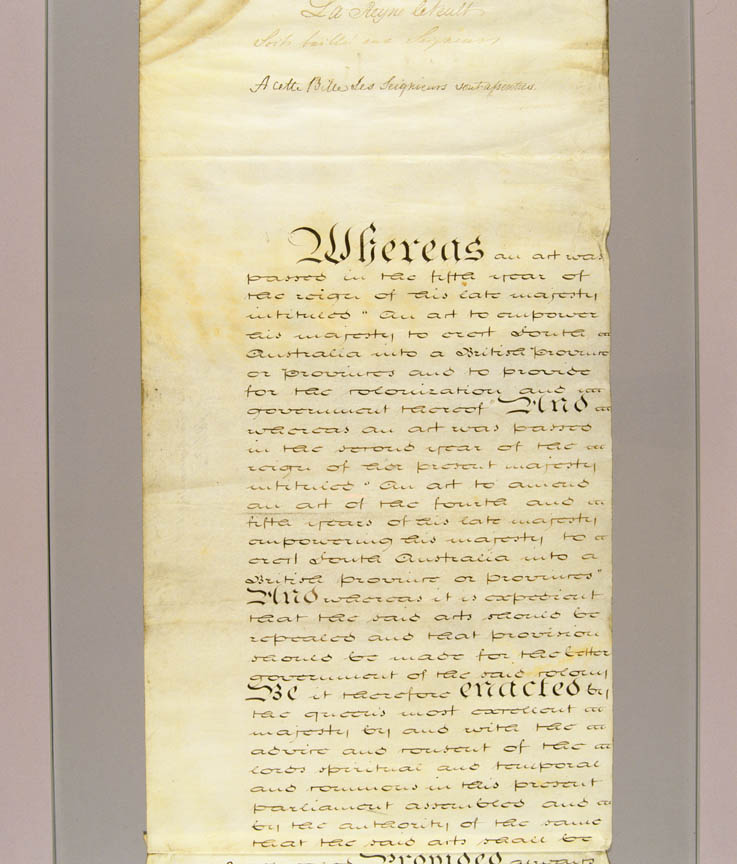 La Reyne le veult
Soit baillé aux Seigneurs
A cette Bille Les Seigneurs sont assentus.
Whereas an act was
passed in the fifth year of
the reign of his late majesty
intituled " An act to empower
his majesty to erect South
Australia into a British Province
or Provinces and to provide
for the colonization and
government thereof" And
whereas an act was passed
in the second year of the
reign of her present majesty
intituled " An act to amend
an act of the fourth and
fifth years of his late majesty
empowering his majesty to
erect South Australia into a
British province or provinces"
And whereas it is expedient
that the said acts should be
repealed and that provision
should be made for the better
government of the said colony
Be it therefore enacted by
the queen's most excellent
majesty by and with the
advice and consent of the
lords spiritual and temporal
and commons in this present
parliament assembled and
by the authority of the same
that the said acts shall be
Provided always